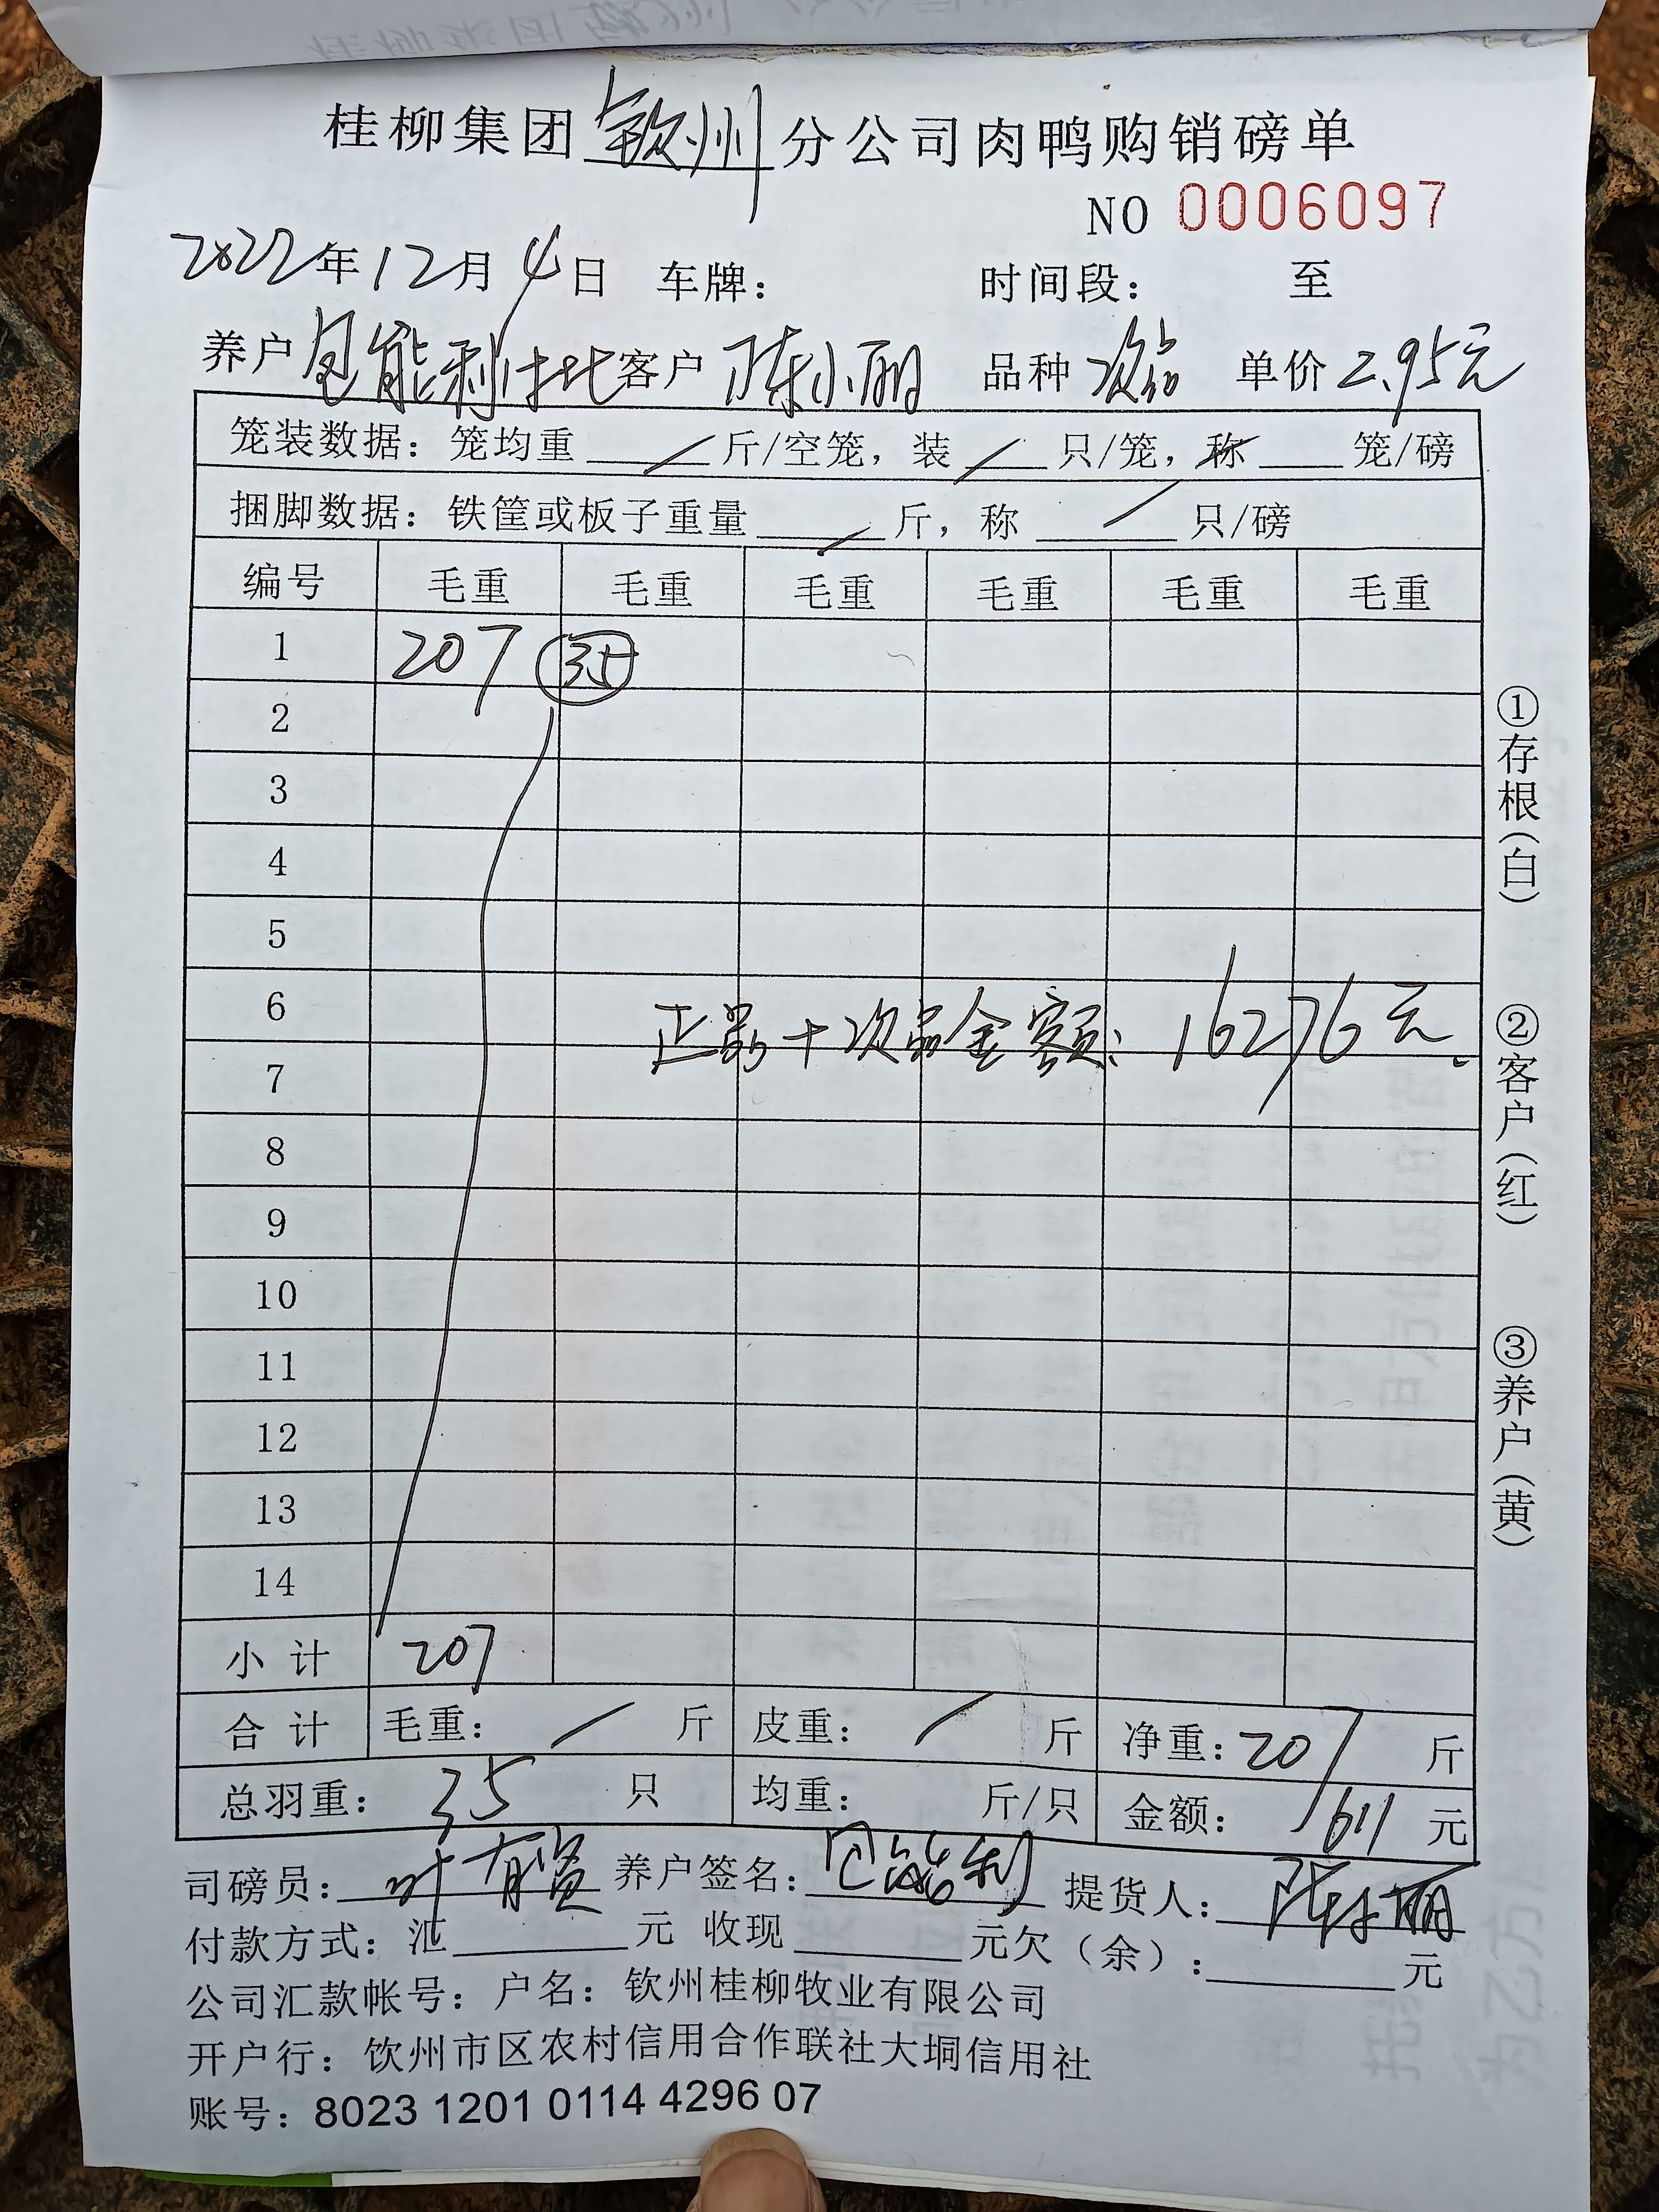 桂柳集团钦州分公司肉鸭购销磅单
NO 0006097
2022年12月4日 车牌： 时间段： 至
养户 能利 客户 陈小丽 品种 次品 单价 2.95元
笼装数据：笼均重 斤/空笼，装 只/笼，称 笼/磅
捆脚数据：铁筐或板子重量 斤，称 只/磅
编号 毛重 毛重 毛重 毛重 毛重 毛重
1 207 35
2
3
4
5
6
正品+次品金额：16276元.
7
8
9
10
11
12
13
14
小计 207
合计 毛重： / 斤 皮重： / 斤 净重：207 斤
总羽重： 35 只 均重： 斤/只 金额： 611 元
司磅员：叶有 养户签名： 能利 提货人：陈小丽
付款方式：汇 元 收现 元欠（余）： 元
公司汇款帐号：户名：钦州桂柳牧业有限公司
开户行：钦州市区农村信用合作联社大垌信用社
账号：8023 1201 0114 4296 07
①存根（白）
②客户（红）
③养户（黄）